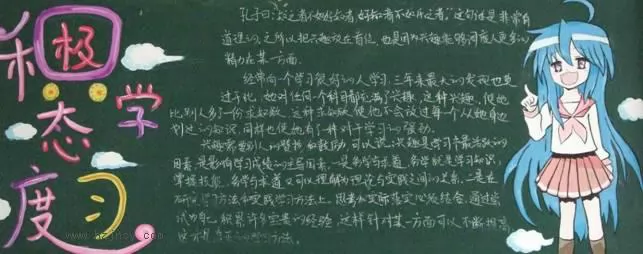 积极
学习
态度
孔子曰:知之者不如好之者,好之者不如乐之者。"这句话是非常有
道理的,之所以把兴趣放在首位,也是因为兴趣能够调度人更多的
精力在某一方面.
经常向一个学习很好的人学习,三年来最大的发现也莫
过于此,她对任何个科目都充满了兴趣,这种兴趣,使她
比别人多了一份求知欲,这种求知欲使他不会放过每一个从她身边
划过的知识,同样也使她有了一种对于学习的
兴趣常是别人的赞扬和鼓励,可以说,兴趣是学习中最活跃的
因素,是影响学习成绩的主导因素.一是务学与求道,务学就是学习知识,
掌握技能,务学与求道又可以理解为理论与实践之间的关系.二是在
学习方法和实践学习方法上,思考和实际落实
积累许多宝贵的经验,这样针对某一方面可以不断提高
学习方法。